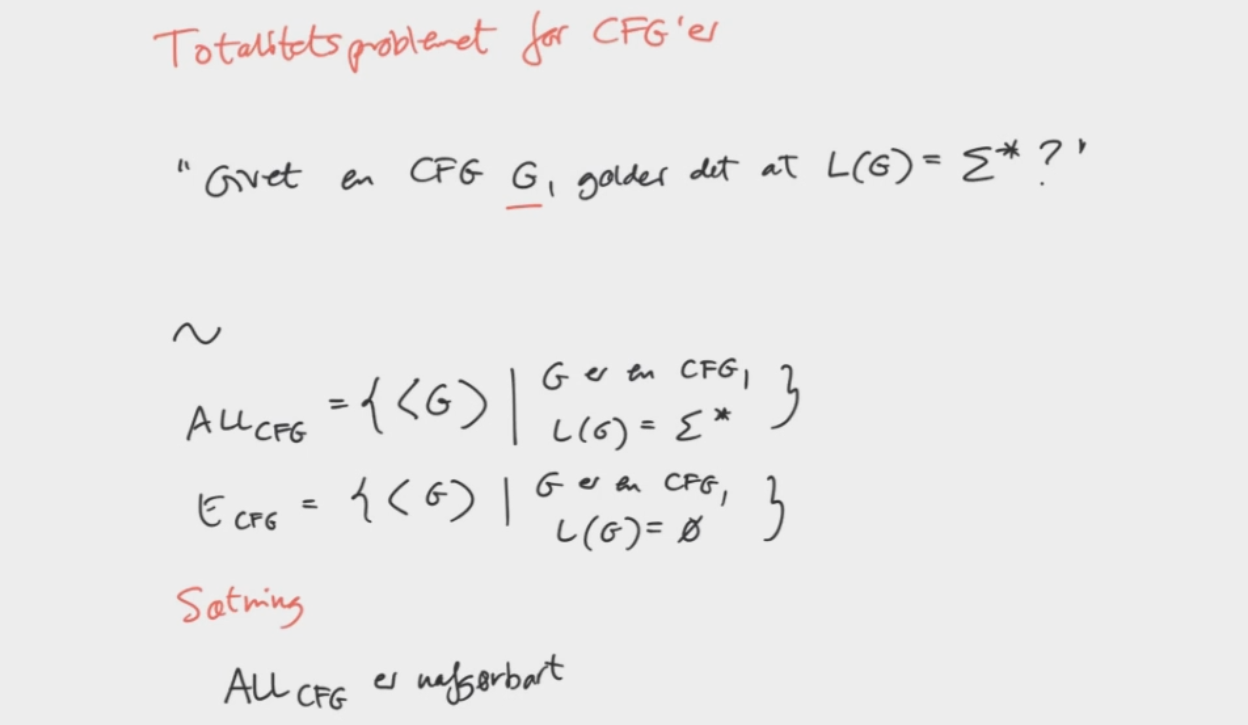 Totalitetsproblemet for CFG'er
"Givet en CFG G, gælder det at L(G) = Σ* ?"
~
ALL_CFG = { <G> | G er en CFG, L(G) = Σ* }
E_CFG = { <G> | G er en CFG, L(G) = ∅ }
Sætning
ALL_CFG er uafgørbart